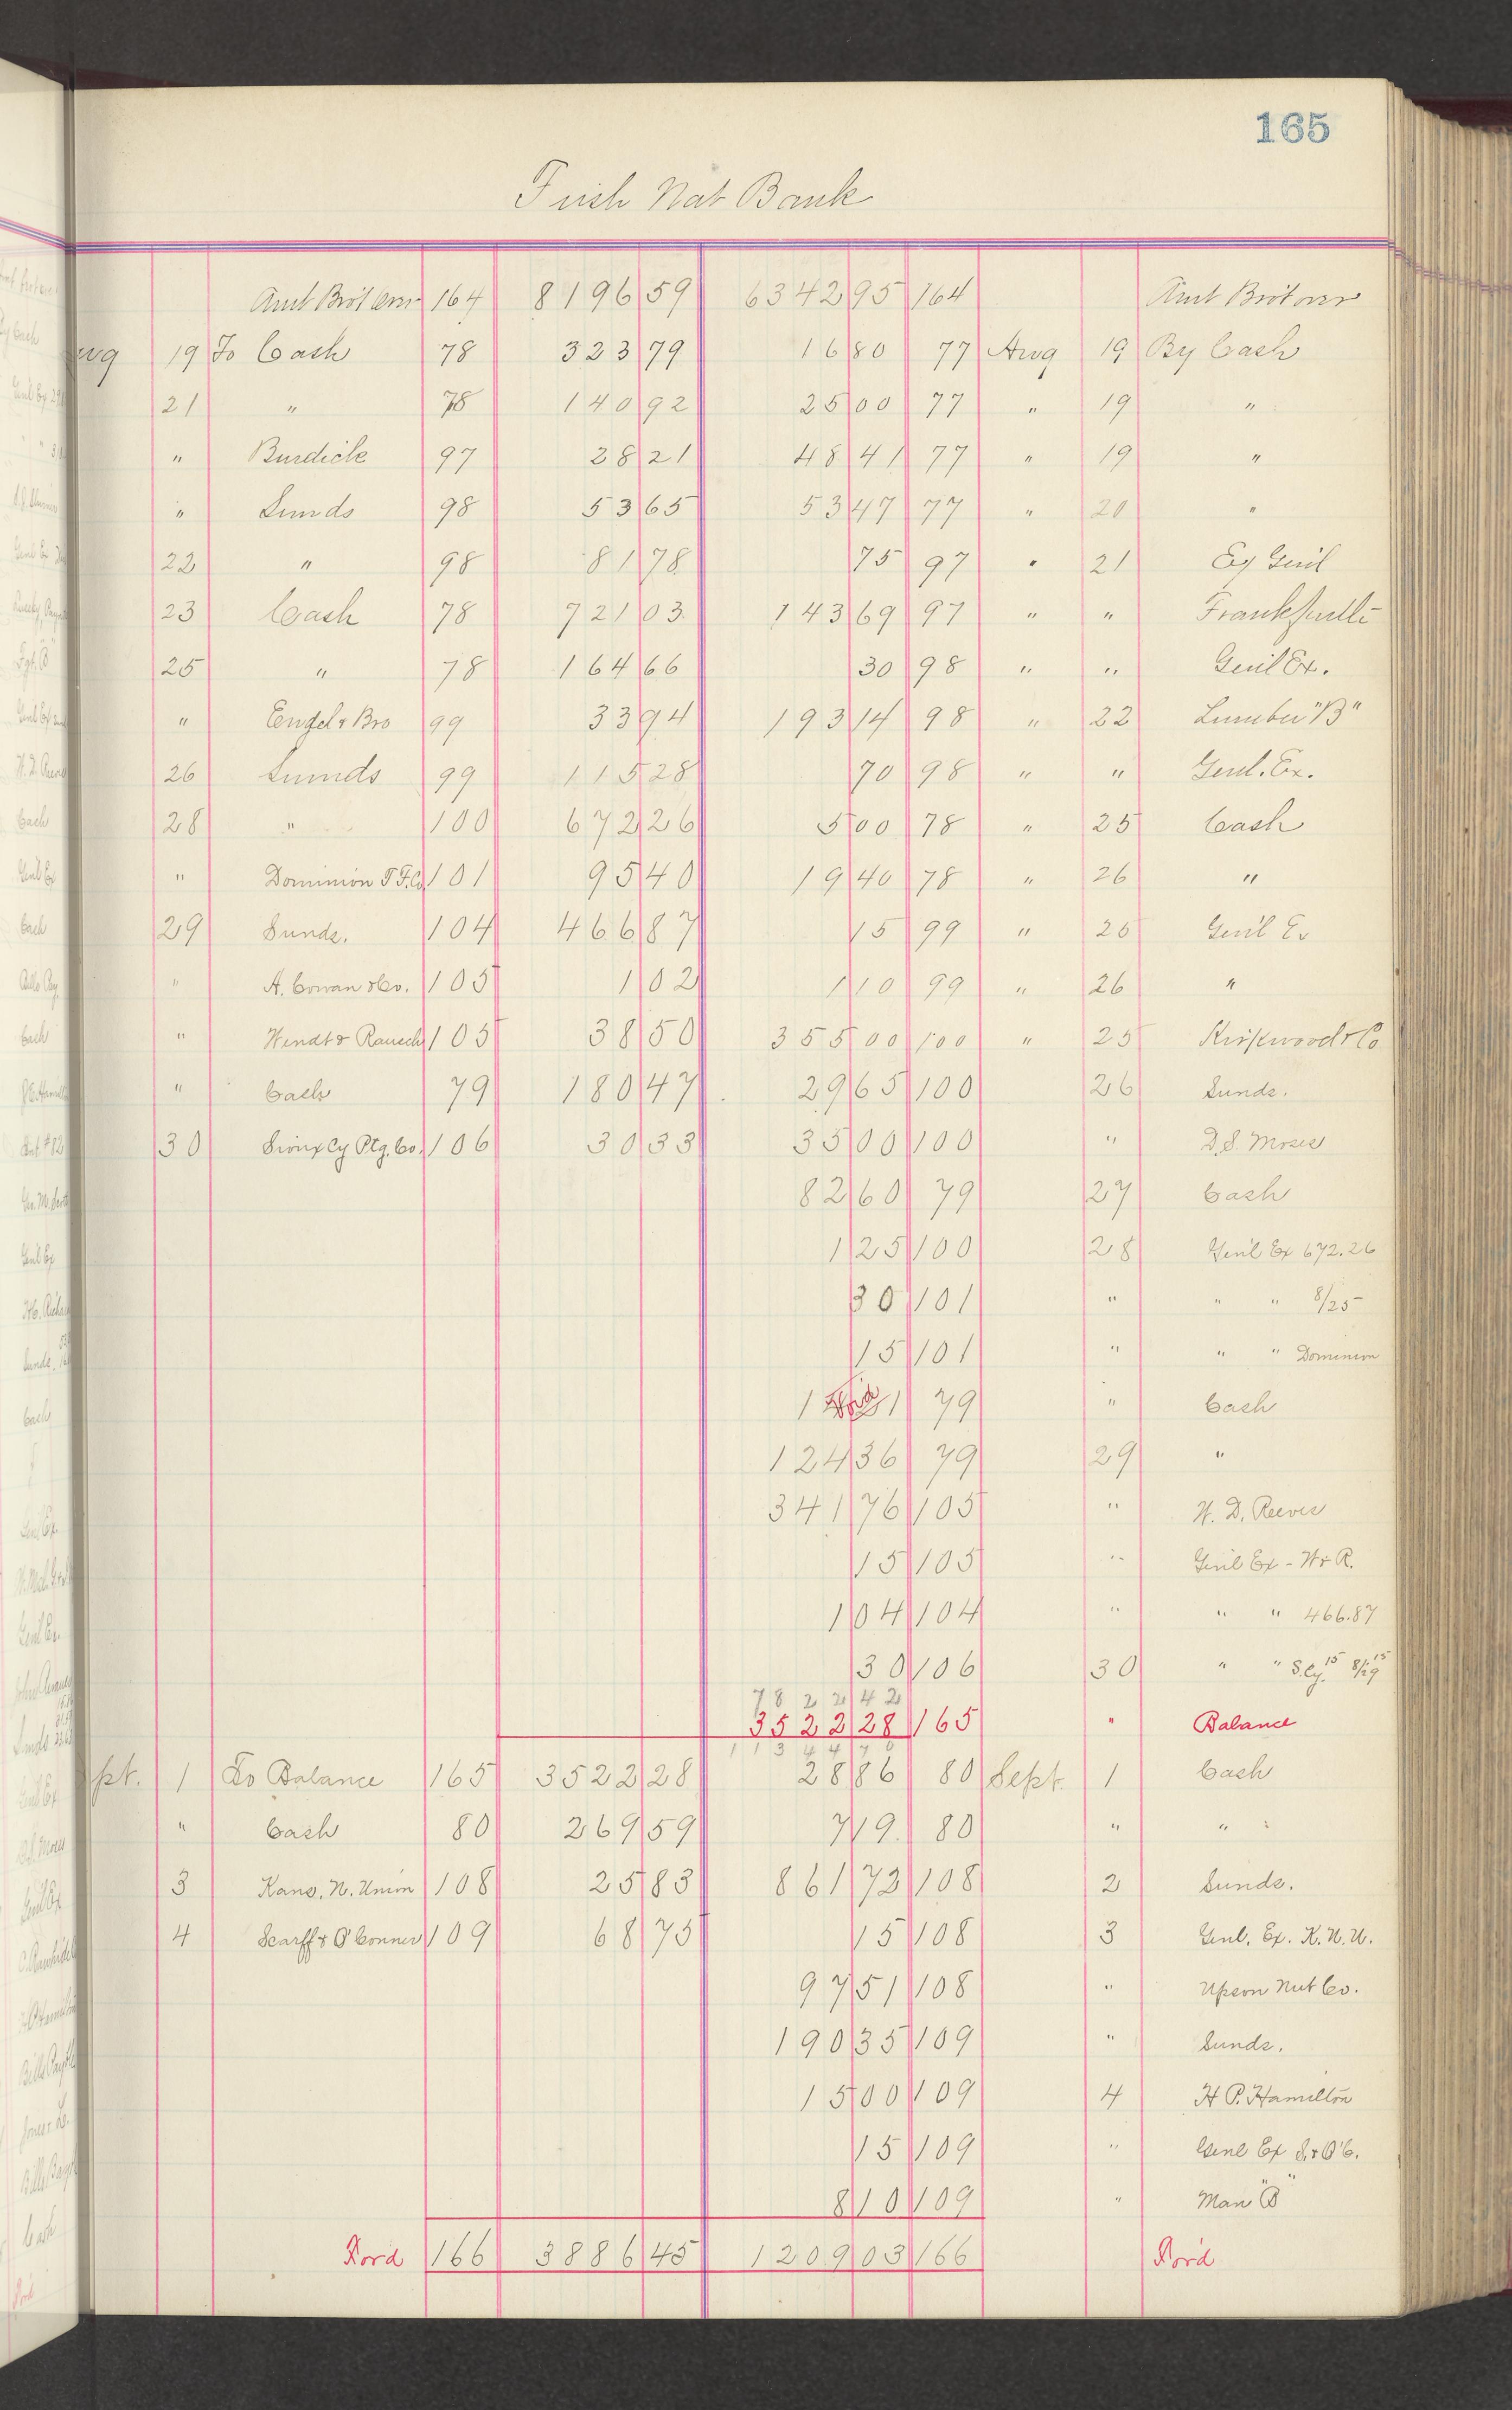 165
First Nat Bank
Amt Bro't over 164 8196 59 6342 95 164 Amt Bro't over
Aug 19 To Cash 78 323 79 16 80 77 Aug 19 By Cash
21 " 78 140 92 25 00 77 " 19 "
" Burdick 97 28 21 48 41 77 " 19 "
" Sunds 98 53 65 53 47 77 " 20 "
22 " 98 81 78 75 97 " 21 Ex Genl
23 Cash 78 721 03 143 69 97 " "
25 " 78 164 66 30 98 " " Genl Ex.
" Engel & Bro 99 33 94 193 14 98 " 22 Lumber "B"
26 Sunds 99 115 28 70 98 " " Genl. Ex.
28 " 100 672 26 5 00 78 " 25 Cash
" Dominion T. F. Co 101 95 40 19 40 78 " 26 "
29 Sunds. 104 466 87 15 99 " 26 Gen'l Ex
" A. Cowan & Co. 105 1 02 1 10 99 " 26 "
" Wendt & Rausch 105 38 50 355 00 100 " 25 Kirkwood & Co
" Cash 79 180 47 29 65 100 26 Sunds.
30 Sioux Cy Ptg. Co. 106 30 33 35 00 100 " D. S. Moses
82 60 79 27 Cash
1 25 100 28 Gen'l Ex 672.26
30 101 " " " 8/25
15 101 " " " Dominion
Void 79 " Cash
124 36 79 29 "
341 76 105 " W. D. Reeves
15 105 " Gen'l Ex - W & R.
1 04 104 " " " 466.87
30 106 30 " " S. Cy. 15 8/29 15
78 22 42
3522 28 165 " Balance
11344 70
Sept. 1 To Balance 165 3522 28 28 86 80 Sept. 1 Cash
" Cash 80 269 59 7 19 80 " " "
3 Kans. N. Union 108 25 83 861 72 108 2 Sunds.
4 Scarff & O'Conner 109 68 75 15 108 3 Genl. Ex. K. N. U.
97 51 108 " Upson Nut Co.
190 35 109 " Sunds.
15 00 109 4 H. P. Hamilton
15 109 " Genl Ex S. & O'C.
8 10 109 " Man "B"
Ford 166 3886 45 1209 03 166 For'd